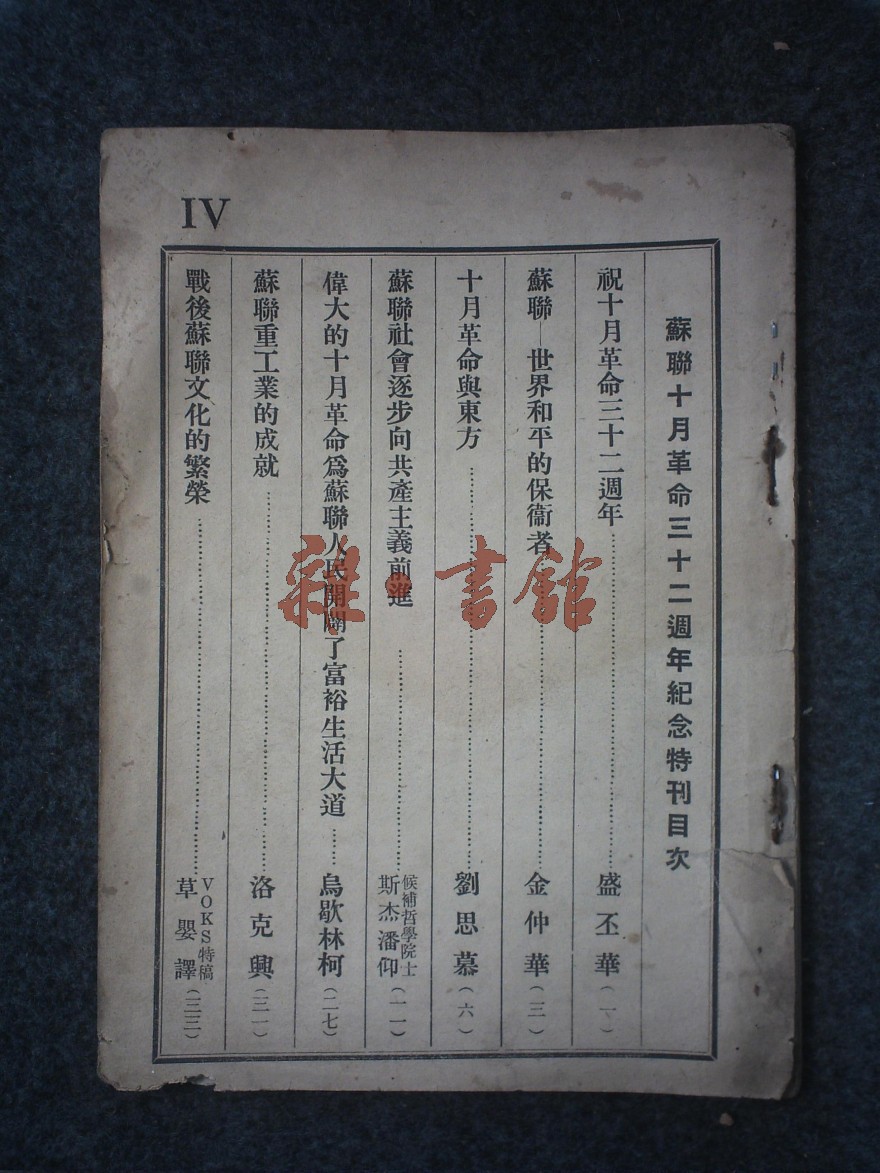 IV
蘇聯十月革命三十二週年紀念特刊目次
祝十月革命三十二週年……盛丕華(一)
蘇聯—世界和平的保衞者……金仲華(三)
十月革命與東方……劉思慕(六)
蘇聯社會逐步向共產主義前進……候補哲學院士 斯杰潘仰(一一)
偉大的十月革命爲蘇聯人民開闢了富裕生活大道……烏歇林柯(二七)
蘇聯重工業的成就……洛克興(三一)
戰後蘇聯文化的繁榮……VOKS特稿 草嬰譯(三三)
雜·書館